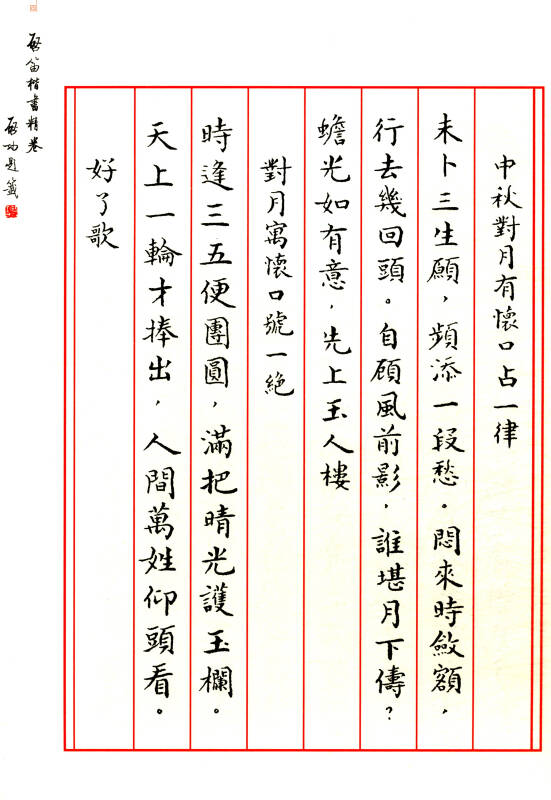 中秋對月有懷口占一律
未卜三生願，頻添一段愁。悶來時斂額，
行去幾回頭。自顧風前影，誰堪月下儔？
蟾光如有意，先上玉人樓
對月寓懷口號一絶
時逢三五便團圓，滿把晴光護玉欄。
天上一輪才捧出，人間萬姓仰頭看。
好了歌
啟笛楷書精卷
啟功題簽